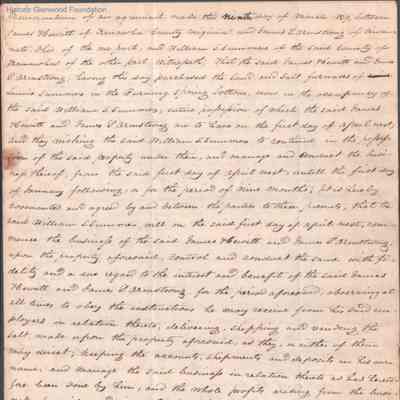 Historic Glenwood Foundation
Memorandum of an agreement made this ninth day of March between
James Hewitt of Kanawha County Virginia and James S Armstrong of
Ohio of the one part, and William S Summers of the said County of
Kanawha of the other part Witnesseth That the said James Hewitt and James
S Armstrong having this day purchased the Land and Salt furnaces of
Lewis Summers in the Burning Spring bottom, now in the occupancy of
the said William S Summers, entire possession of which the said James
Hewitt and James S Armstrong are to have on the first day of april next,
and they wishing the said William S Summers to continue in the posses
ion of the said property under them, and manage and conduct the busi-
ness thereof, from the said first day of april next, untill the first day
of January following, or for the period of nine months; It is hereby
covenanted and agreed by and between the parties to these presents, that the
said William S Summers will on the said first day of april next, com-
mence the business of the said James Hewitt and James S Armstrong,
upon the property aforesaid, control and conduct the same with fi-
delity and a due regard to the interest and benefit of the said James
Hewitt and James S Armstrong for the period aforesaid, observing at
all times to obey the instructions he may receive from his said em
ployers in relation thereto, delivering, shipping and vending the
salt made upon the property aforesaid, as they, or either of them
may direct; keeping the accounts, shipments and deposits in his own
name, and manage the said business in relation thereto as has hereto
fore been done by him, and the whole profits arising from the busi-